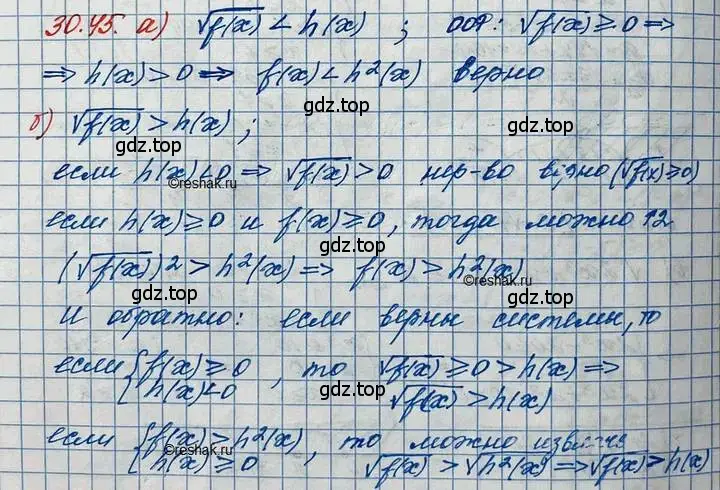 30.45. а) √f(x) < h(x) ; ООР: √f(x) ≥ 0 ⇒
⇒ h(x) > 0 ⇒ f(x) < h²(x) верно
gdz.top
б) √f(x) > h(x) ;
gdz.top
если h(x) < 0 ⇒ √f(x) > 0 нер-во вірно (√f(x) ≥ 0)
©reshak.ru
если h(x) ≥ 0 и f(x) ≥ 0, тогда можно ↑2
gdz.top
(√f(x))2 > h²(x) ⇒ f(x) > h²(x)
©reshak.ru
gdz.top
И обратно: если верны системы, то
gdz.top
если { f(x) ≥ 0 h(x) < 0 , то √f(x) ≥ 0 > h(x) ⇒
√f(x) > h(x)
gdz.top
©reshak.ru
если { f(x) > h²(x) h(x) ≥ 0 , то можно извлечь
gdz.top
√f(x) > √h²(x) ⇒ √f(x) > h(x)